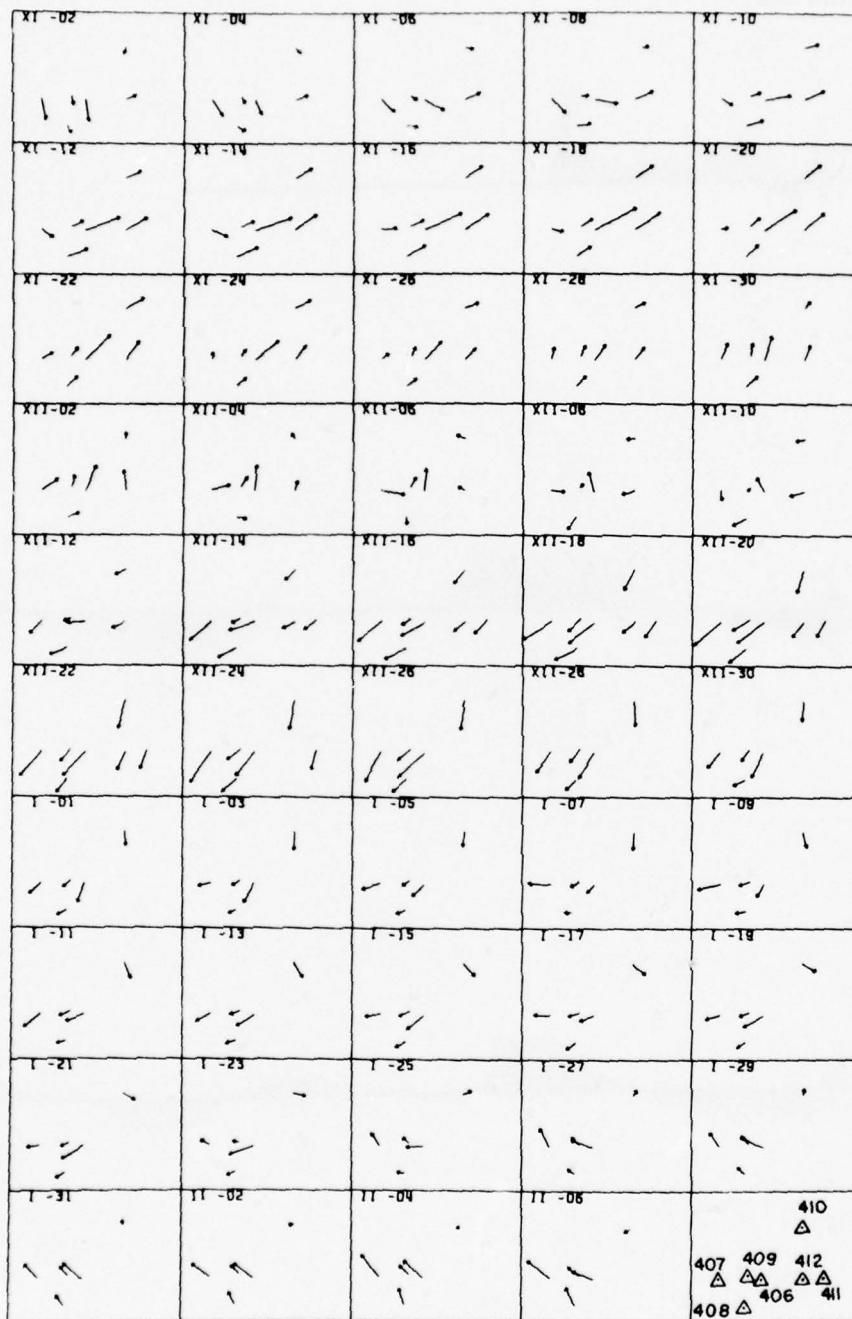 XI -02 XI -04 XI -06 XI -08 XI -10
XI -12 XI -14 XI -16 XI -18 XI -20
XI -22 XI -24 XI -26 XI -28 XI -30
XII-02 XII-04 XII-06 XII-08 XII-10
XII-12 XII-14 XII-16 XII-18 XII-20
XII-22 XII-24 XII-26 XII-28 XII-30
I -01 I -03 I -05 I -07 I -09
I -11 I -13 I -15 I -17 I -19
I -21 I -23 I -25 I -27 I -29
I -31 II -02 II -04 II -06
410
407 409 412
406 411
408